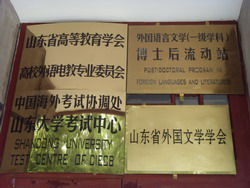 山东省高等教育学会
高校外语电教专业委员会
外国语言文学(一级学科)
博士后流动站
POST-DOCTORAL PROGRAM IN
FOREIGN LANGUAGES AND LITERATURES
中国海外考试协调处
山东大学考试中心
SHANDONG UNIVERSITY
TEST CENTRE OF CIECB
山东省外国文学学会